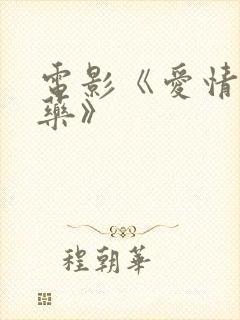 電影《愛情
藥》
程朝華